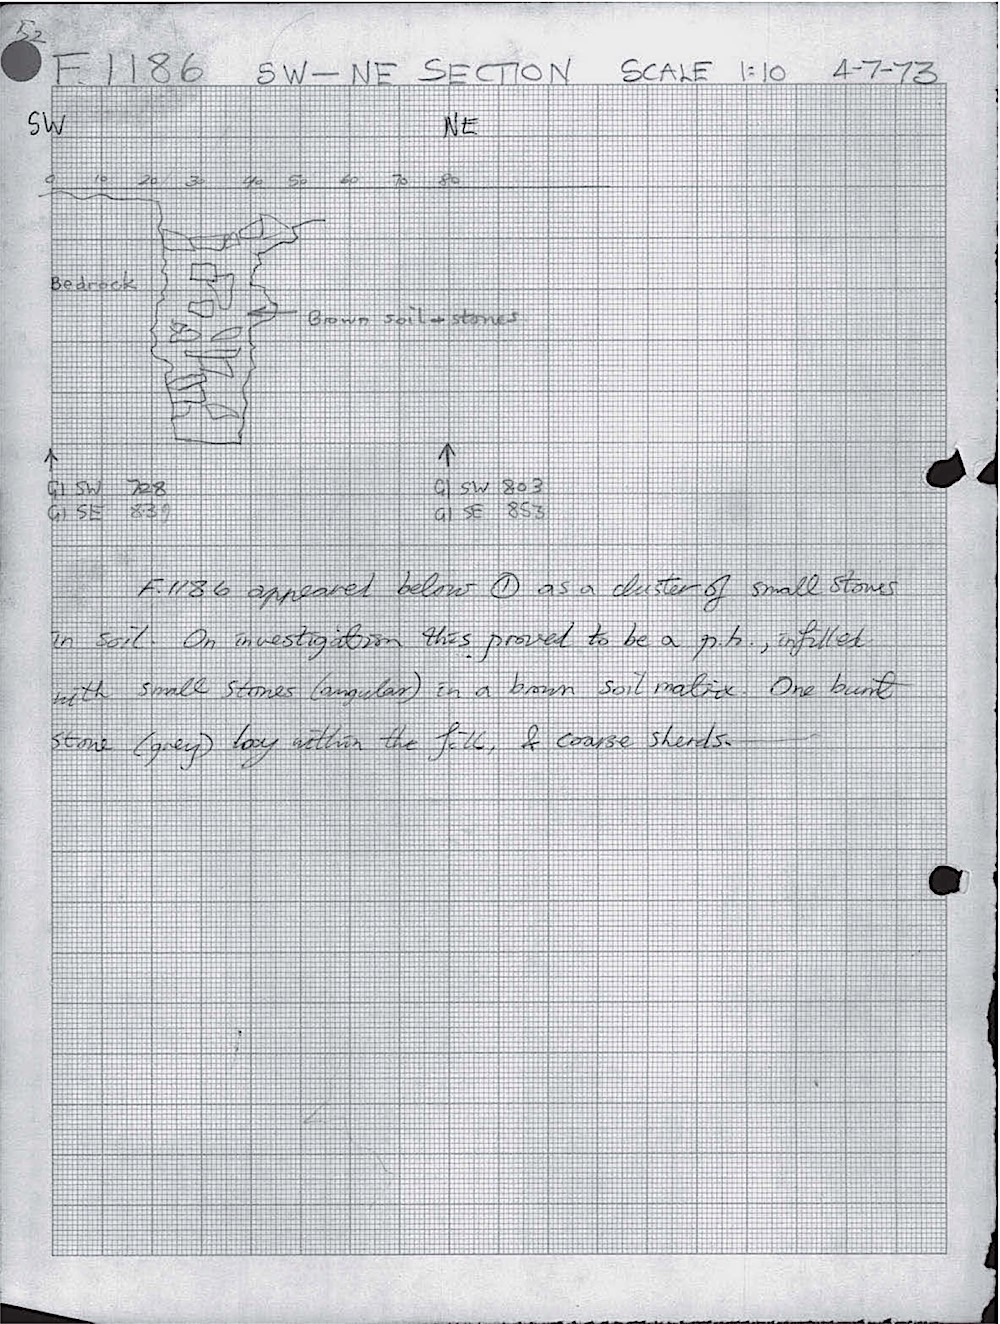 52
F. 1186 SW-NE SECTION SCALE 1:10 4-7-73
SW NE
0 10 20 30 40 50 60 70 80
Bedrock
Brown soil + stones
G1 SW 728 G1 SW 803
G1 SE 839 G1 SE 853
F.1186 appeared below ① as a cluster of small stones
in soil. On investigation this proved to be a p.h., infilled
with small stones (angular) in a brown soil matrix. One burnt
stone (grey) lay within the fill, & coarse sherds.